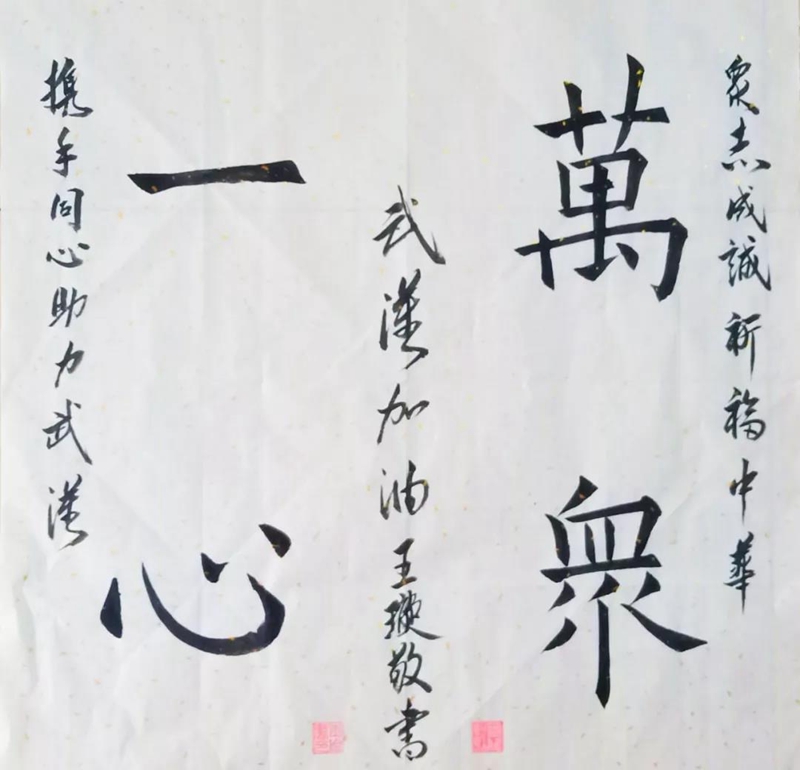 眾志成誠祈福中華
萬眾
武漢加油王敬書
一心
攜手同心助力武漢